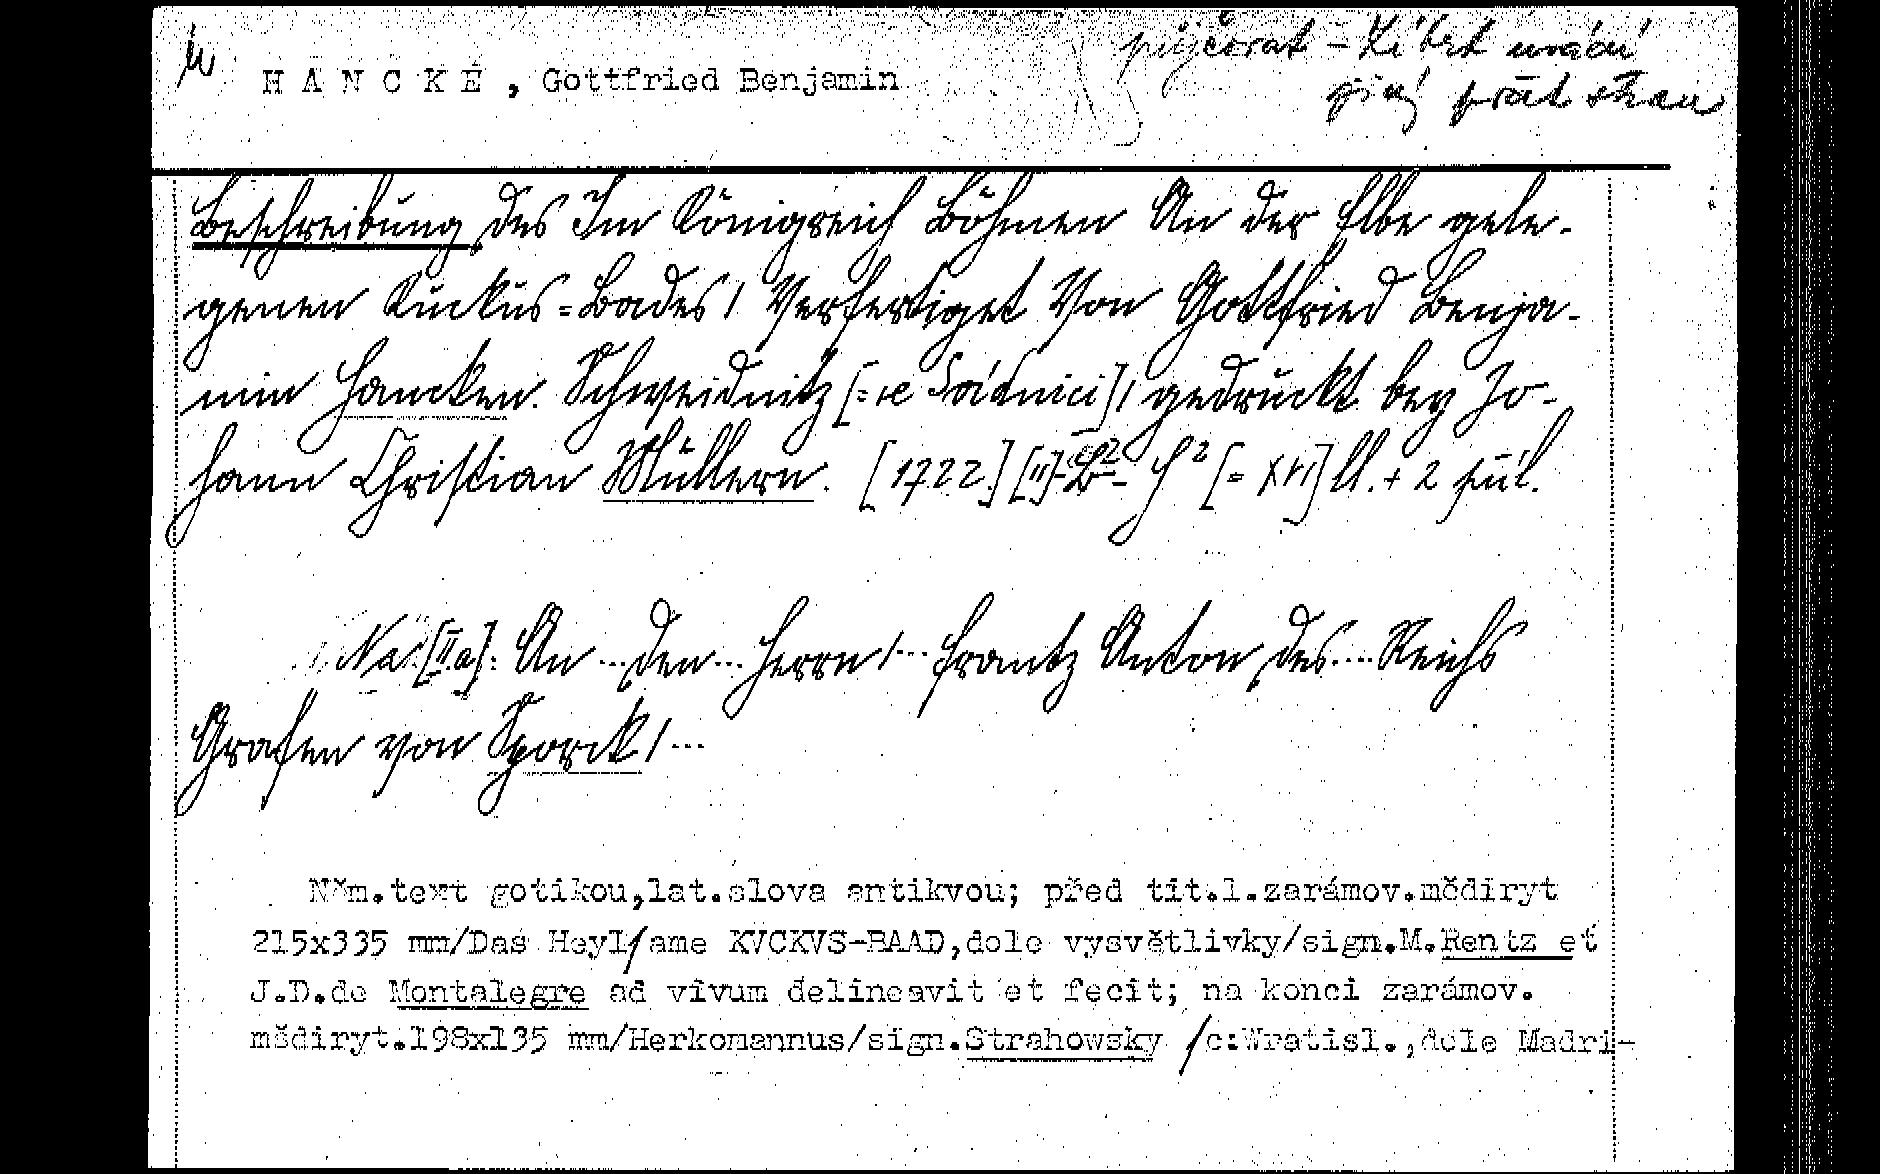 HANCKE, Gottfried Benjamin
půjčovat – Zíbrt uvádí
jiný počát stran
Beschreibung des Im Königreich Böhmen An der Elbe gele-
genen Kuckus=Bades/ Verfertiget Von Gottfried Benja-
min Hancken. Schweidnitz [= ve Svídnici]/ gedruckt bey Jo-
hann Christian Müllern. [1722] [II]- S² [= XVI] ll. + 2 příl.
Na [IIa]: An ... den ... Herrn/... Frantz Anton des .... Reichs
Grafen von Sporck/ ...
Něm.text gotikou,lat.slova antikvou; před tit.l.zarámov.mědiryt
215x335 mm/Das Heyl/ame KVCKVS-BAAD,dole vysvětlivky/sign.M.Rentz et
J.D.de Montalegre ad vivum delineavit et fecit; na konci zarámov.
mědiryt.198x135 mm/Herkomannus/sign.Strahowsky /c:Wratisl.,dole Madri-